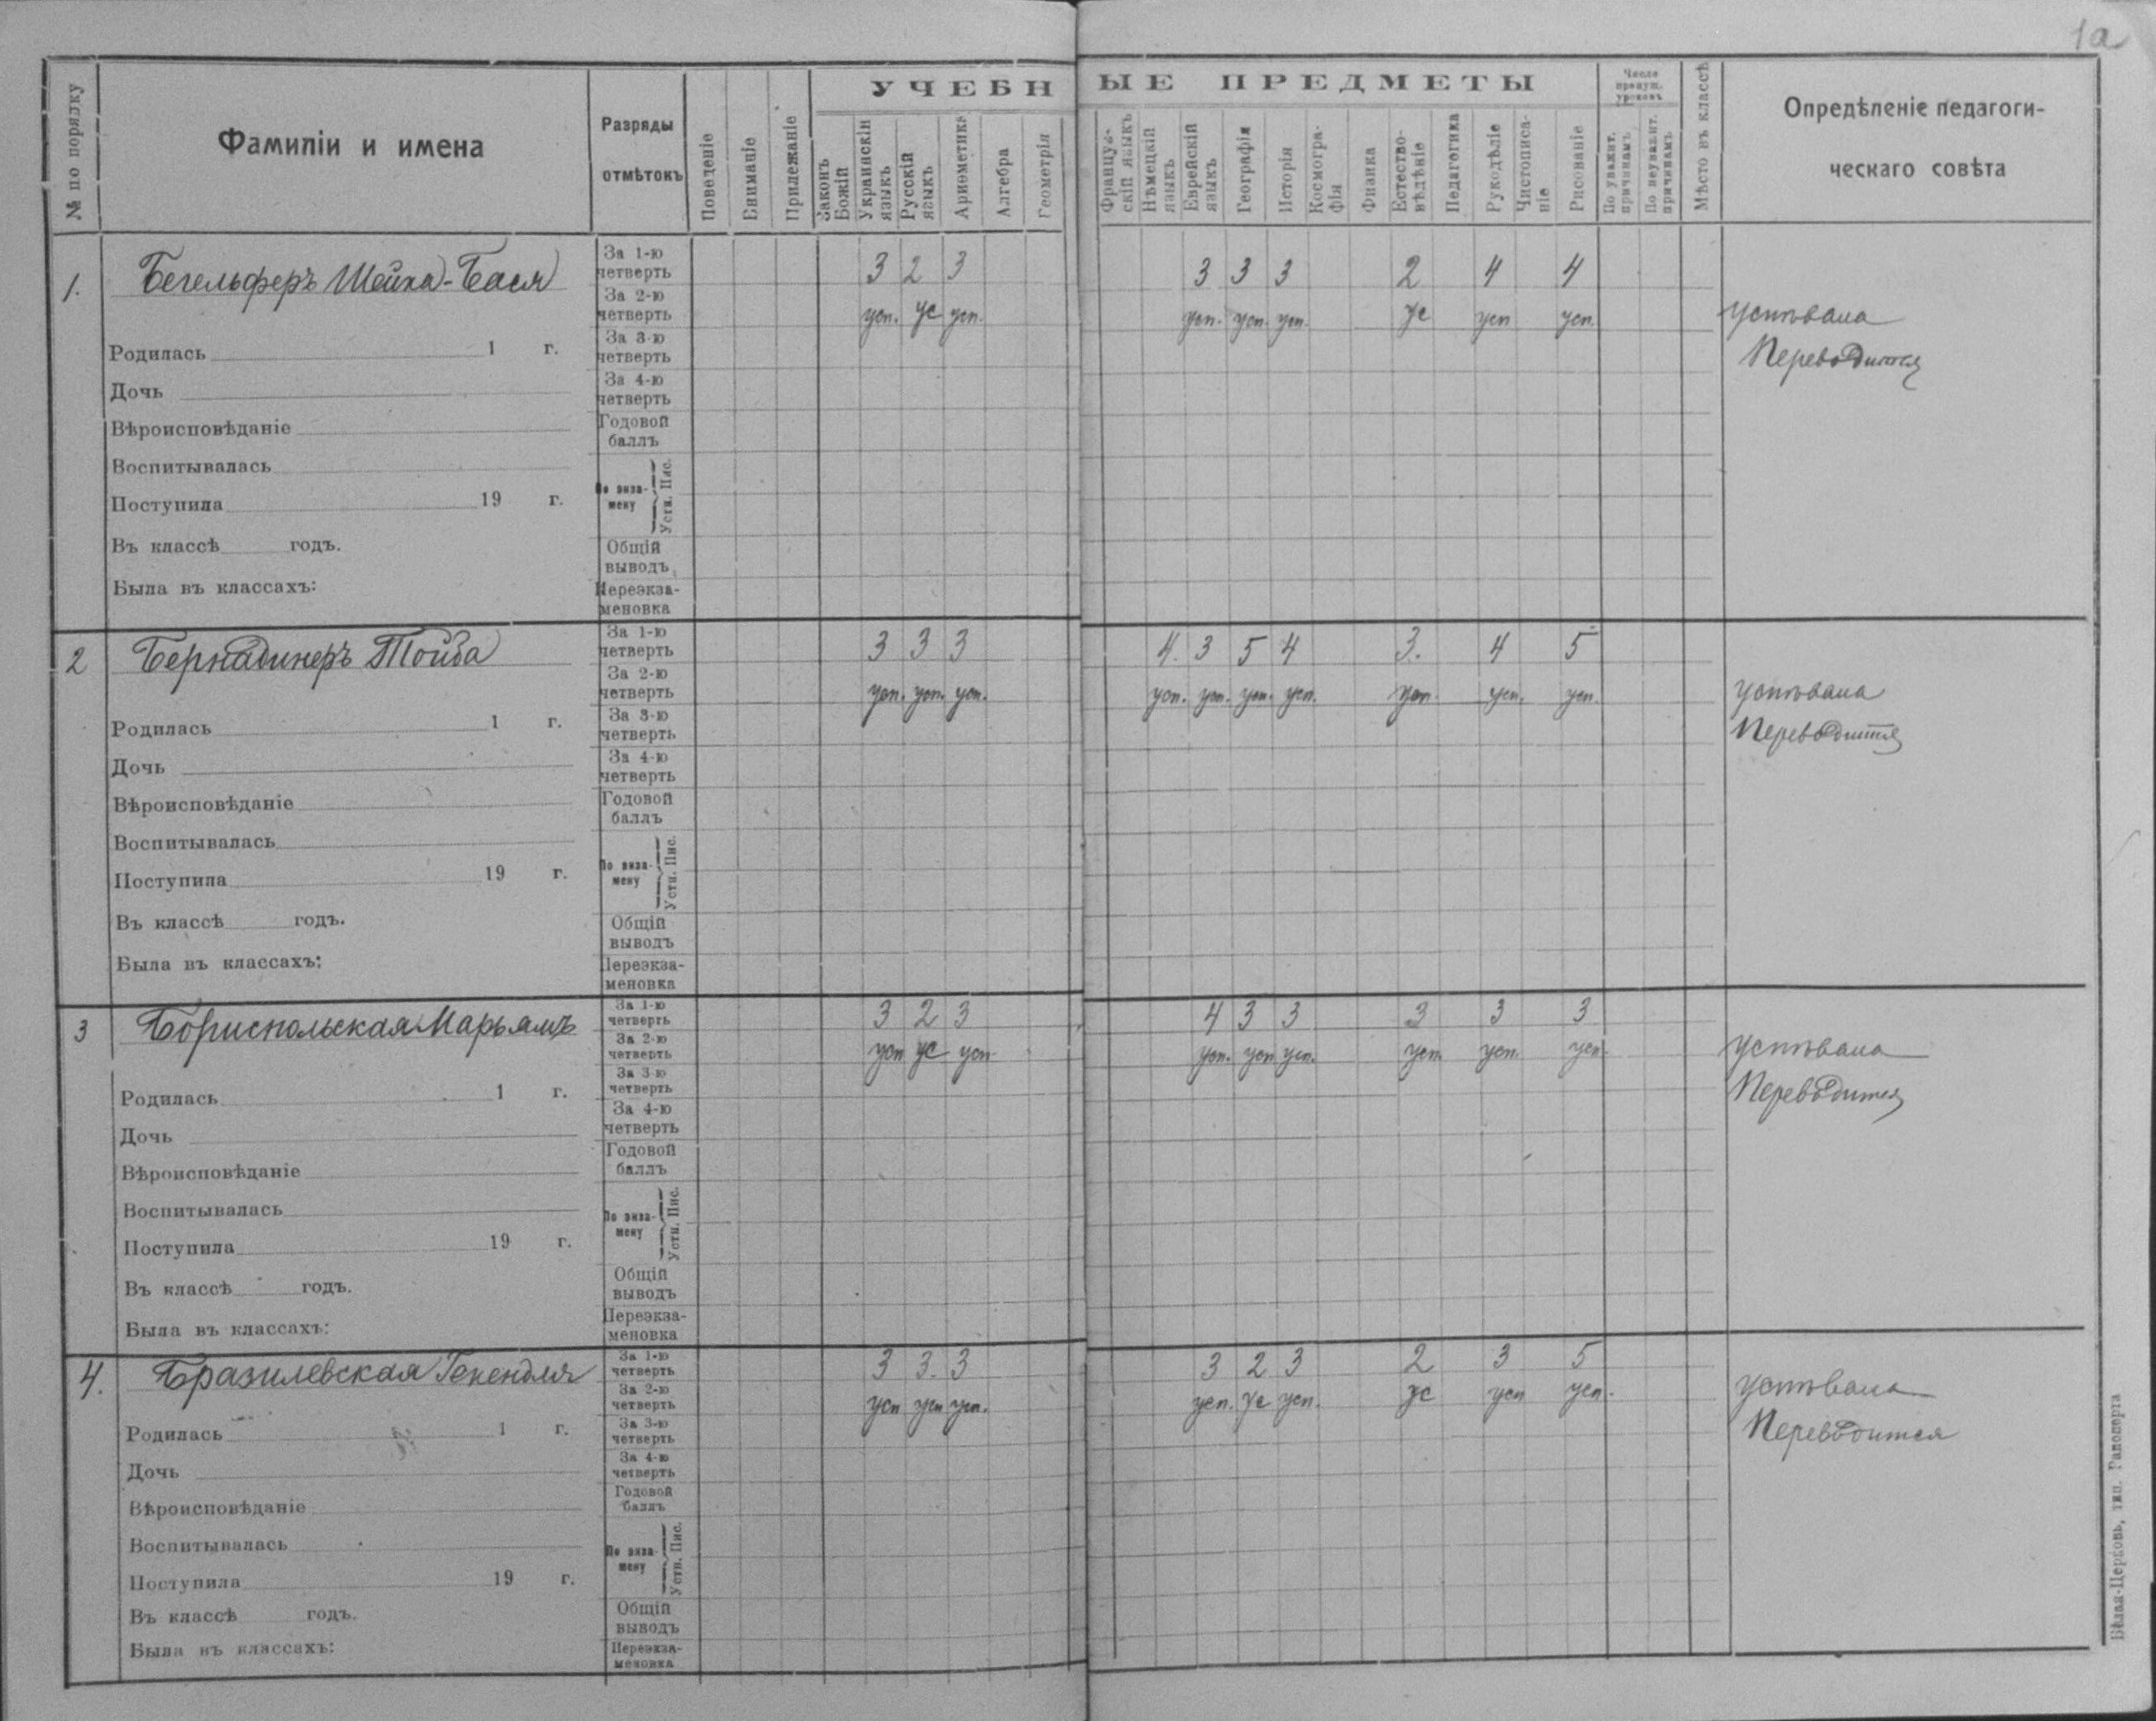 1а
№ по порядку
Фамиліи и имена
Разряды отмѣтокъ
Поведеніе
Вниманіе
Прилежаніе
УЧЕБНЫЕ ПРЕДМЕТЫ
Законъ Божій
Украинскій языкъ
Русскій языкъ
Ариѳметика
Алгебра
Геометрія
Французскій языкъ
Нѣмецкій языкъ
Еврейскій языкъ
Географія
Исторія
Космографія
Физика
Естествовѣдѣніе
Педагогика
Рукодѣліе
Чистописаніе
Рисованіе
Число пропущ. уроковъ
По уважит. причинамъ
По неуважит. причинамъ
Мѣсто въ классѣ
Опредѣленіе педагоги-
ческаго совѣта
1. Бегельферъ Шейна-Бася
За 1-ю четверть 3 2 3 3 3 3 2 4 4
За 2-ю четверть усп. ус усп. усп. усп. усп. ус усп усп.
успѣвала
Переводится
За 3-ю четверть
За 4-ю четверть
Годовой баллъ
По экзамену Устн. Пис.
Общій выводъ
Переэкзаменовка
Родилась 1 г.
Дочь
Вѣроисповѣданіе
Воспитывалась
Поступила 19 г.
Въ классѣ годъ.
Была въ классахъ:
2 Бернадинеръ Тойба
За 1-ю четверть 3 3 3 4. 3 5 4 3. 4 5
За 2-ю четверть усп. усп. усп. усп. усп. усп. усп. усп. усп. усп.
успѣвала
Переводится
За 3-ю четверть
За 4-ю четверть
Годовой баллъ
По экзамену Устн. Пис.
Общій выводъ
Переэкзаменовка
Родилась 1 г.
Дочь
Вѣроисповѣданіе
Воспитывалась
Поступила 19 г.
Въ классѣ годъ.
Была въ классахъ:
3 Бориспольская Марьямъ
За 1-ю четверть 3 2 3 4 3 3 3 3 3
За 2-ю четверть усп ус усп усп. усп усп. усп. усп. усп.
успѣвала
Переводится
За 3-ю четверть
За 4-ю четверть
Годовой баллъ
По экзамену Устн. Пис.
Общій выводъ
Переэкзаменовка
Родилась 1 г.
Дочь
Вѣроисповѣданіе
Воспитывалась
Поступила 19 г.
Въ классѣ годъ.
Была въ классахъ:
4. Бразилевская
За 1-ю четверть 3 3. 3 3 2 3 2 3 5
За 2-ю четверть усп усп усп. усп. ус усп. ус усп усп.
успѣвала
Переводится
За 3-ю четверть
За 4-ю четверть
Годовой баллъ
По экзамену Устн. Пис.
Общій выводъ
Переэкзаменовка
Родилась 1 г.
Дочь
Вѣроисповѣданіе
Воспитывалась
Поступила 19 г.
Въ классѣ годъ.
Была въ классахъ:
Бѣлая-Церковь, тип. Рапопорта